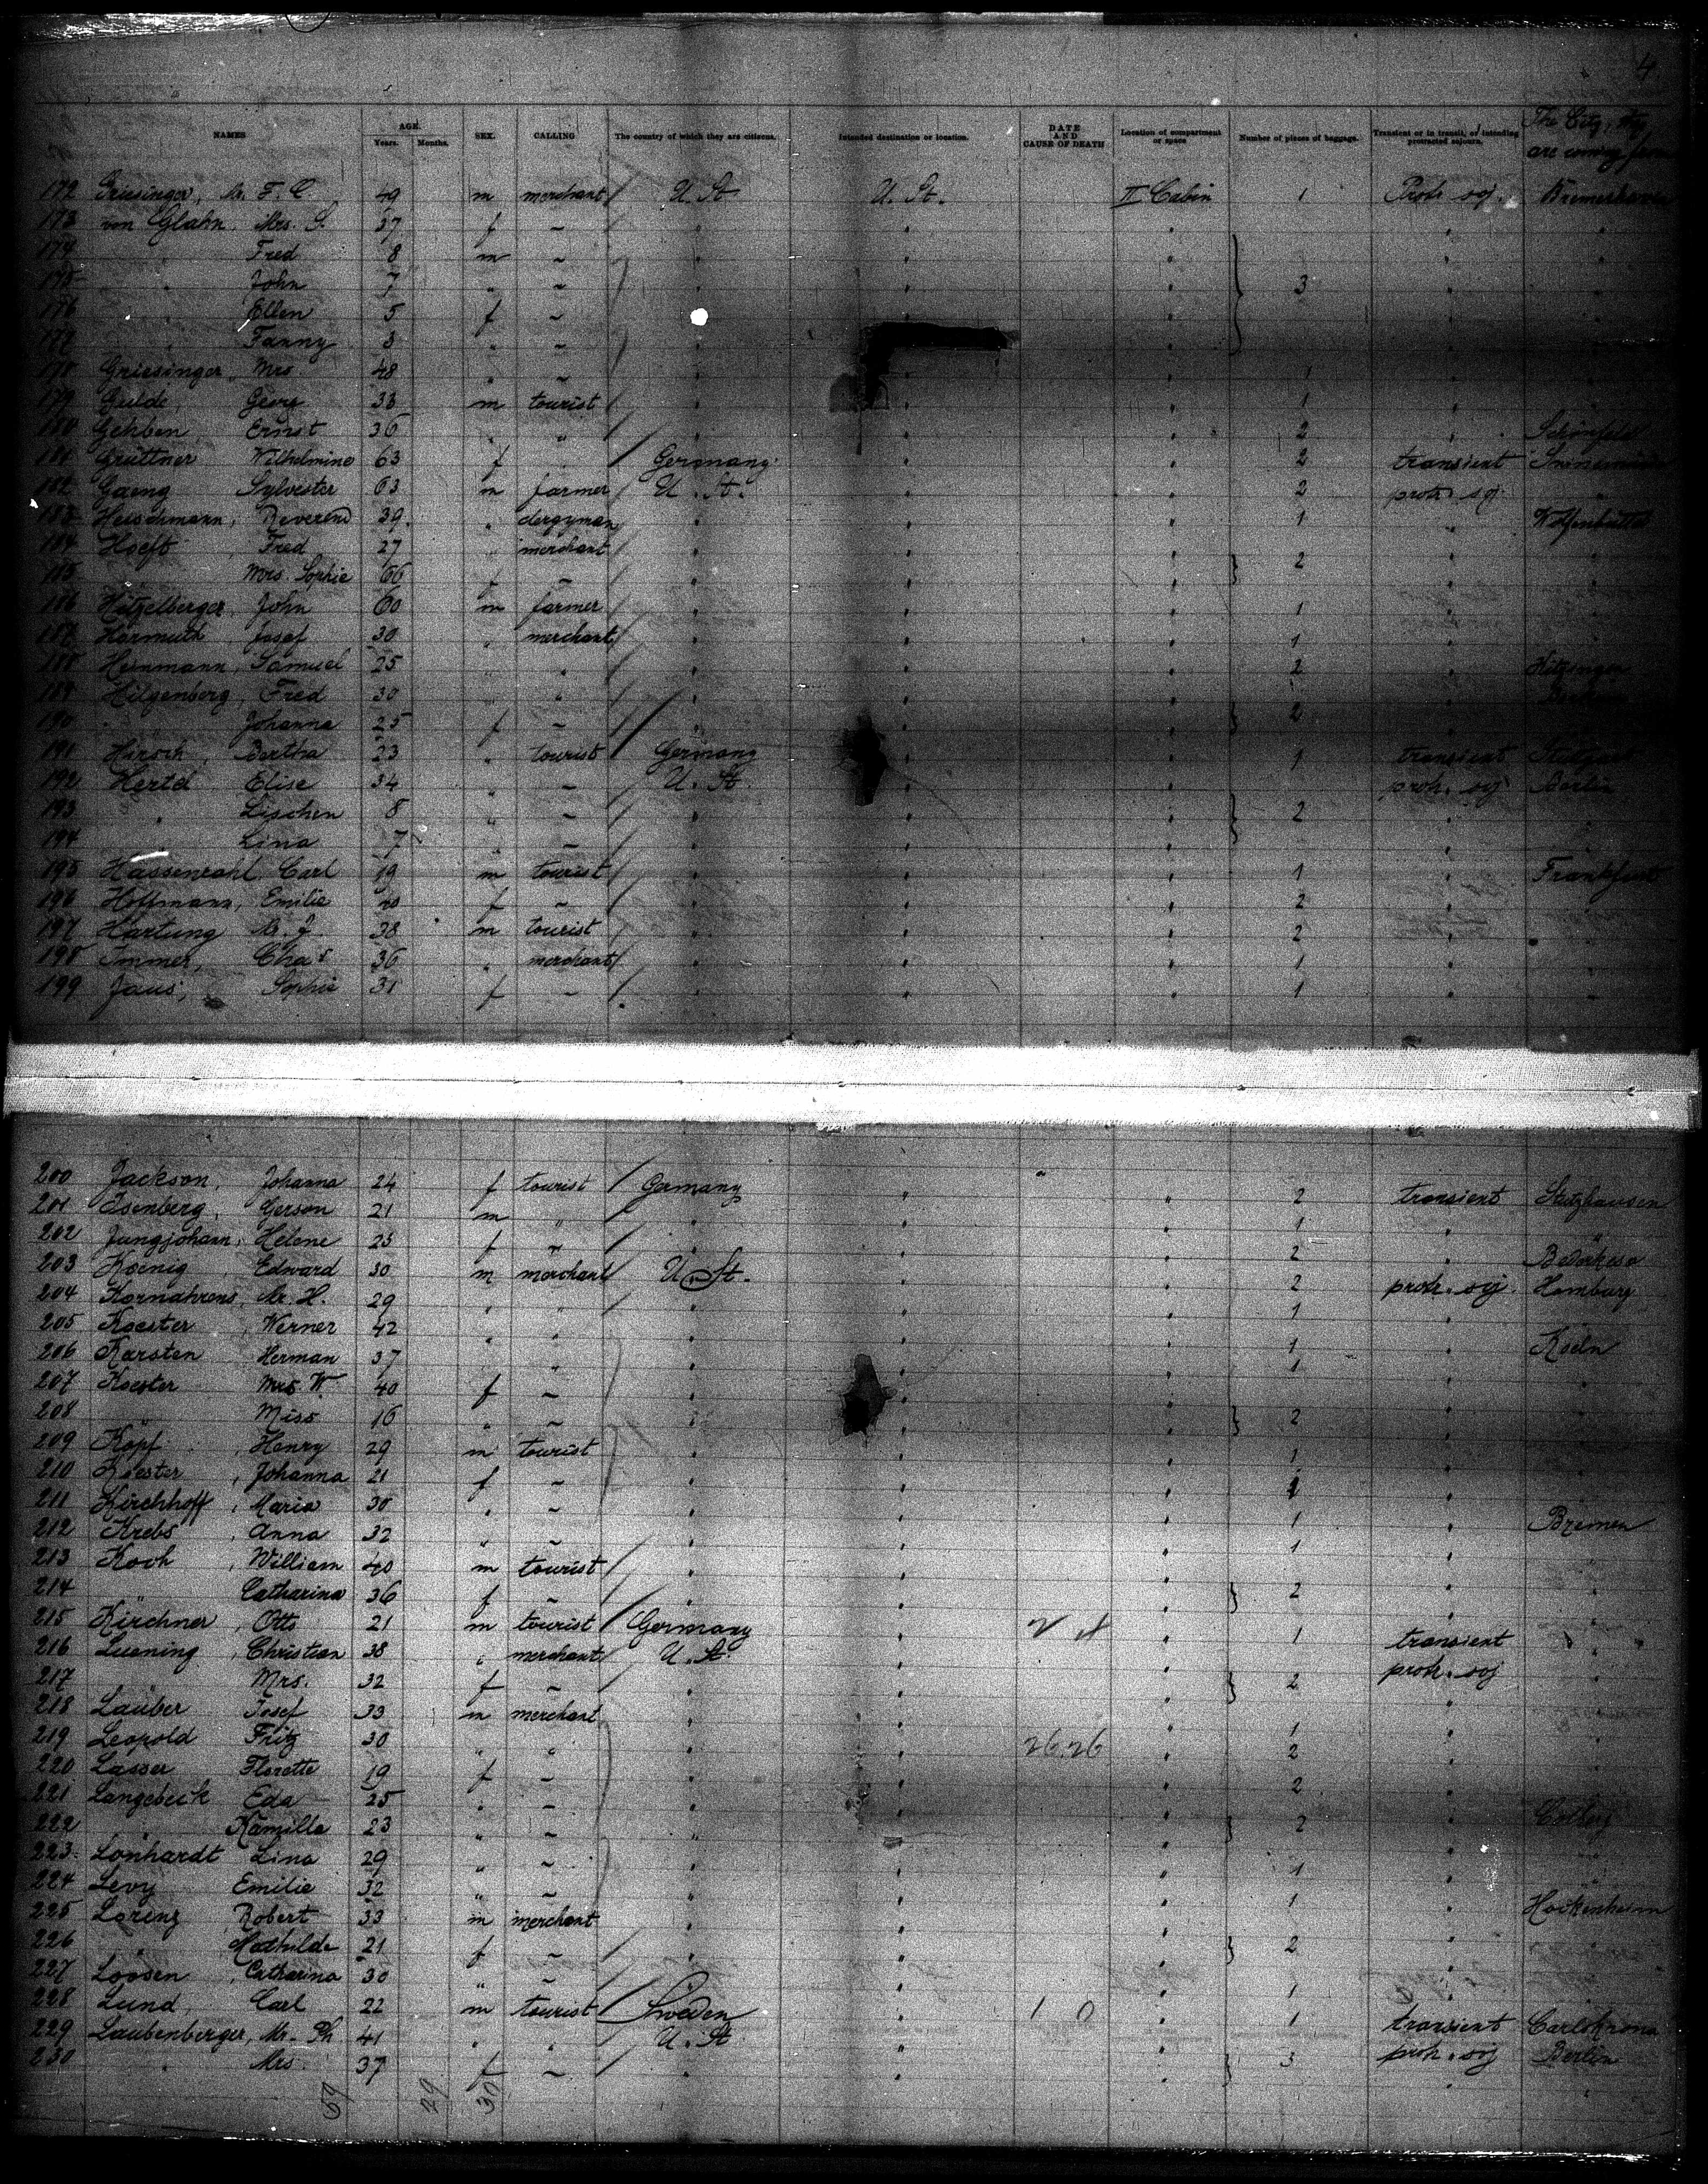 4
NAMES AGE. Years. Months. SEX. CALLING The country of which they are citizens. Intended destination or location. DATE AND CAUSE OF DEATH Location of compartment or space Number of pieces of baggage. Transient or in transit, or intending protracted sojourn. The City, they are coming from
172 Griesinger, Mr. F. C. 49 m merchant U. St. U. St. II Cabin 1 Protr. soj. Bremerhaven
173 von Glahn, Mrs. S. 37 f ~ " " " " "
174 " Fred 8 m ~ " " " " "
175 " John 7 " ~ " " " 3 " "
176 " Ellen 5 f ~ " " " " "
177 " Fanny 3 " ~ " " " " "
178 Griesinger Mrs 48 " ~ " " " 1 " "
179 Gulde, Georg 33 m tourist " " " 1 "
180 Gehben Ernst 36 " " " " " 2 " Schönfeld
181 Grüttner Wilhelmine 63 f " Germany " " 2 transient
182 Gaeng Sylvester 63 m farmer U. St. " " 2 protr. soj. "
183 Heischmann, Reverend 39 " clergyman " " " 1 " Wolfenbüttel
184 Hoeft Fred 27 " merchant " " " "
185 " Mrs. Sophie 66 f ~ " " " 2 "
186 Hetzelberger, John 60 m farmer " " " 1 "
187 Harmuth Josef 30 " merchant " " " 1 "
188 Heinmann, Samuel 25 " " " " " 2 " Kitzingen
189 Hilgenberg, Fred 30 " " " " " "
190 " Johanna 25 f ~ " " " 2 "
191 Hirsch, Bertha 23 " tourist Germany " " 1 transient Stuttgart
192 Hertel Elise 34 " ~ U. St. " " protr. soj Berlin
193 " Lischen 8 " ~ " " " 2 " "
194 " Lina 7 " ~ " " " " "
195 Hassenzahl, Carl 19 m tourist " " " 1 " Frankfurt
196 Hoffmann, Emilie 20 f ~ " " " 2 " "
197 Hartung Mr. J. 38 m tourist " " " 2 " "
198 Immer, Chas 36 " merchant " " " 1 " "
199 Jaus, Sophie 31 f ~ " " " 1 " "
200 Jackson, Johanna 24 f tourist Germany " " 2 transient Stutzhausen
201 Isenberg, Gerson 21 m " " " " 1 " "
202 Jungjohann, Helene 23 f ~ " " " 2 " Bederkesa
203 Koenig, Edward 30 m merchant U. St. " " 2 protr. soj. Hamburg
204 Kornahrens, Mr. H. 29 " " " " " 1 " "
205 Koester, Werner 42 " " " " " 1 " Koeln
206 Karsten Herman 37 " " " " " 1 " "
207 Koester Mrs. W. 40 f ~ " " " " "
208 " Miss 16 " ~ " " " 2 " "
209 Kopf, Henry 29 m tourist " " " 1 " "
210 Koester, Johanna 21 f ~ " " " 1 " "
211 Kirchhoff, Maria 30 " ~ " " " 1 " Bremen
212 Krebs, Anna 32 " ~ " " " 1 " "
213 Koch, William 40 m tourist " " " " "
214 " Catharina 36 f ~ " " " 2 " "
215 Kirchner, Otto 21 m tourist Germany " " 1 transient "
216 Luening, Christian 38 " merchant U. St. " " protr. soj "
217 " Mrs. 32 f ~ " " " 2 " "
218 Lauber Josef 33 m merchant " " " 1 " "
219 Leopold Fritz 30 " " " " 26 26 " 2 " "
220 Lasser Florette 19 f ~ " " " 2 " "
221 Langebeck Eda 25 " ~ " " " " Colberg
222 " Kamilla 23 " ~ " " " 2 " "
223 Lönhardt Lina 29 " ~ " " " 1 " "
224 Levy Emilie 32 " ~ " " " 1 " Hockenheim
225 Lorenz Robert 33 m merchant " " " " "
226 " Mathilde 21 f ~ " " " 2 " "
227 Loosen, Catharina 30 " ~ " " " 1 " "
228 Lund, Carl 22 m tourist Sweden " 1 0 " 1 transient Carlskrona
229 Laubenberger, Mr. Ph 41 " " U. St " " protr. soj Berlin
230 " Mrs. 37 f ~ " " " 3 " "
59 29 30